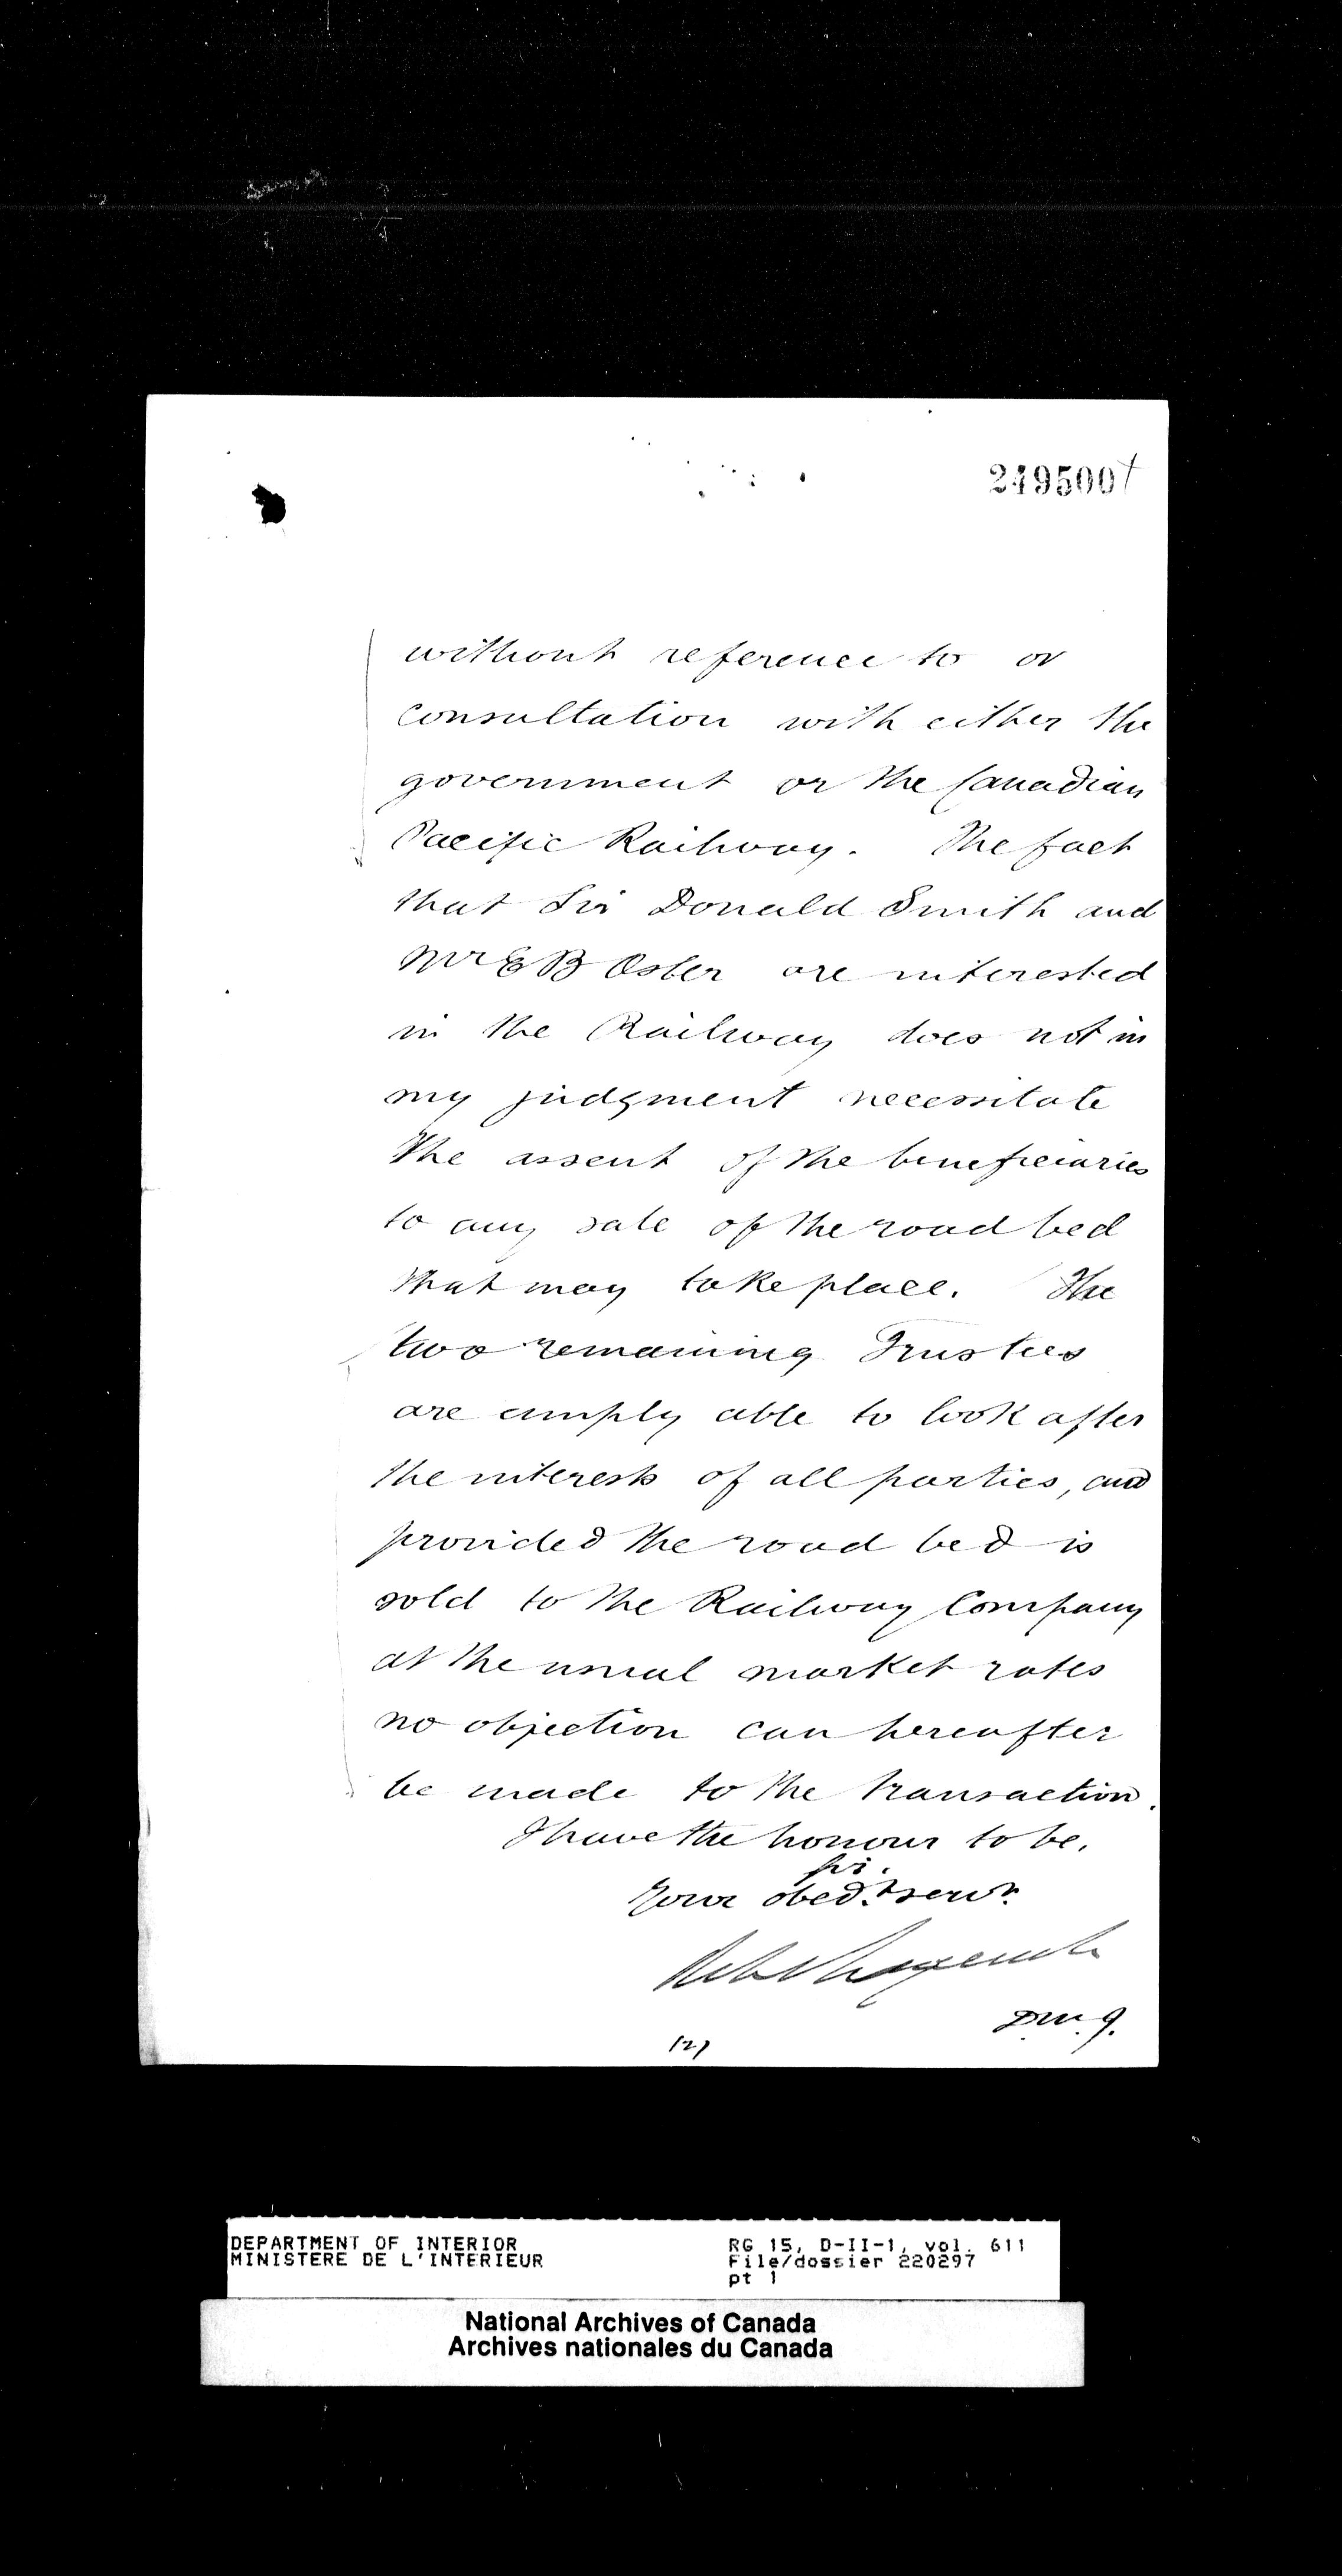 249500
without reference to or
consultation with either the
government or the Canadian
Pacific Railway. The fact
that Sir Donald Smith and
Mr E B Osler are interested
in the Railway does not in
my judgment necessitate
the assent of the beneficiaries
to any sale of the road bed
that may take place. The
two remaining Trustees
are amply able to look after
the interests of all parties, and
provided the road bed is
sold to the Railway Company
at the usual market rates
no objection can hereafter
be made to the transaction.
I have the honour to be,
Sir.
Your obedt servt
D.M.J.
(2)
DEPARTMENT OF INTERIOR
MINISTERE DE L'INTERIEUR
RG 15, D-II-1, vol. 611
File/dossier 220297
pt 1
National Archives of Canada
Archives nationales du Canada